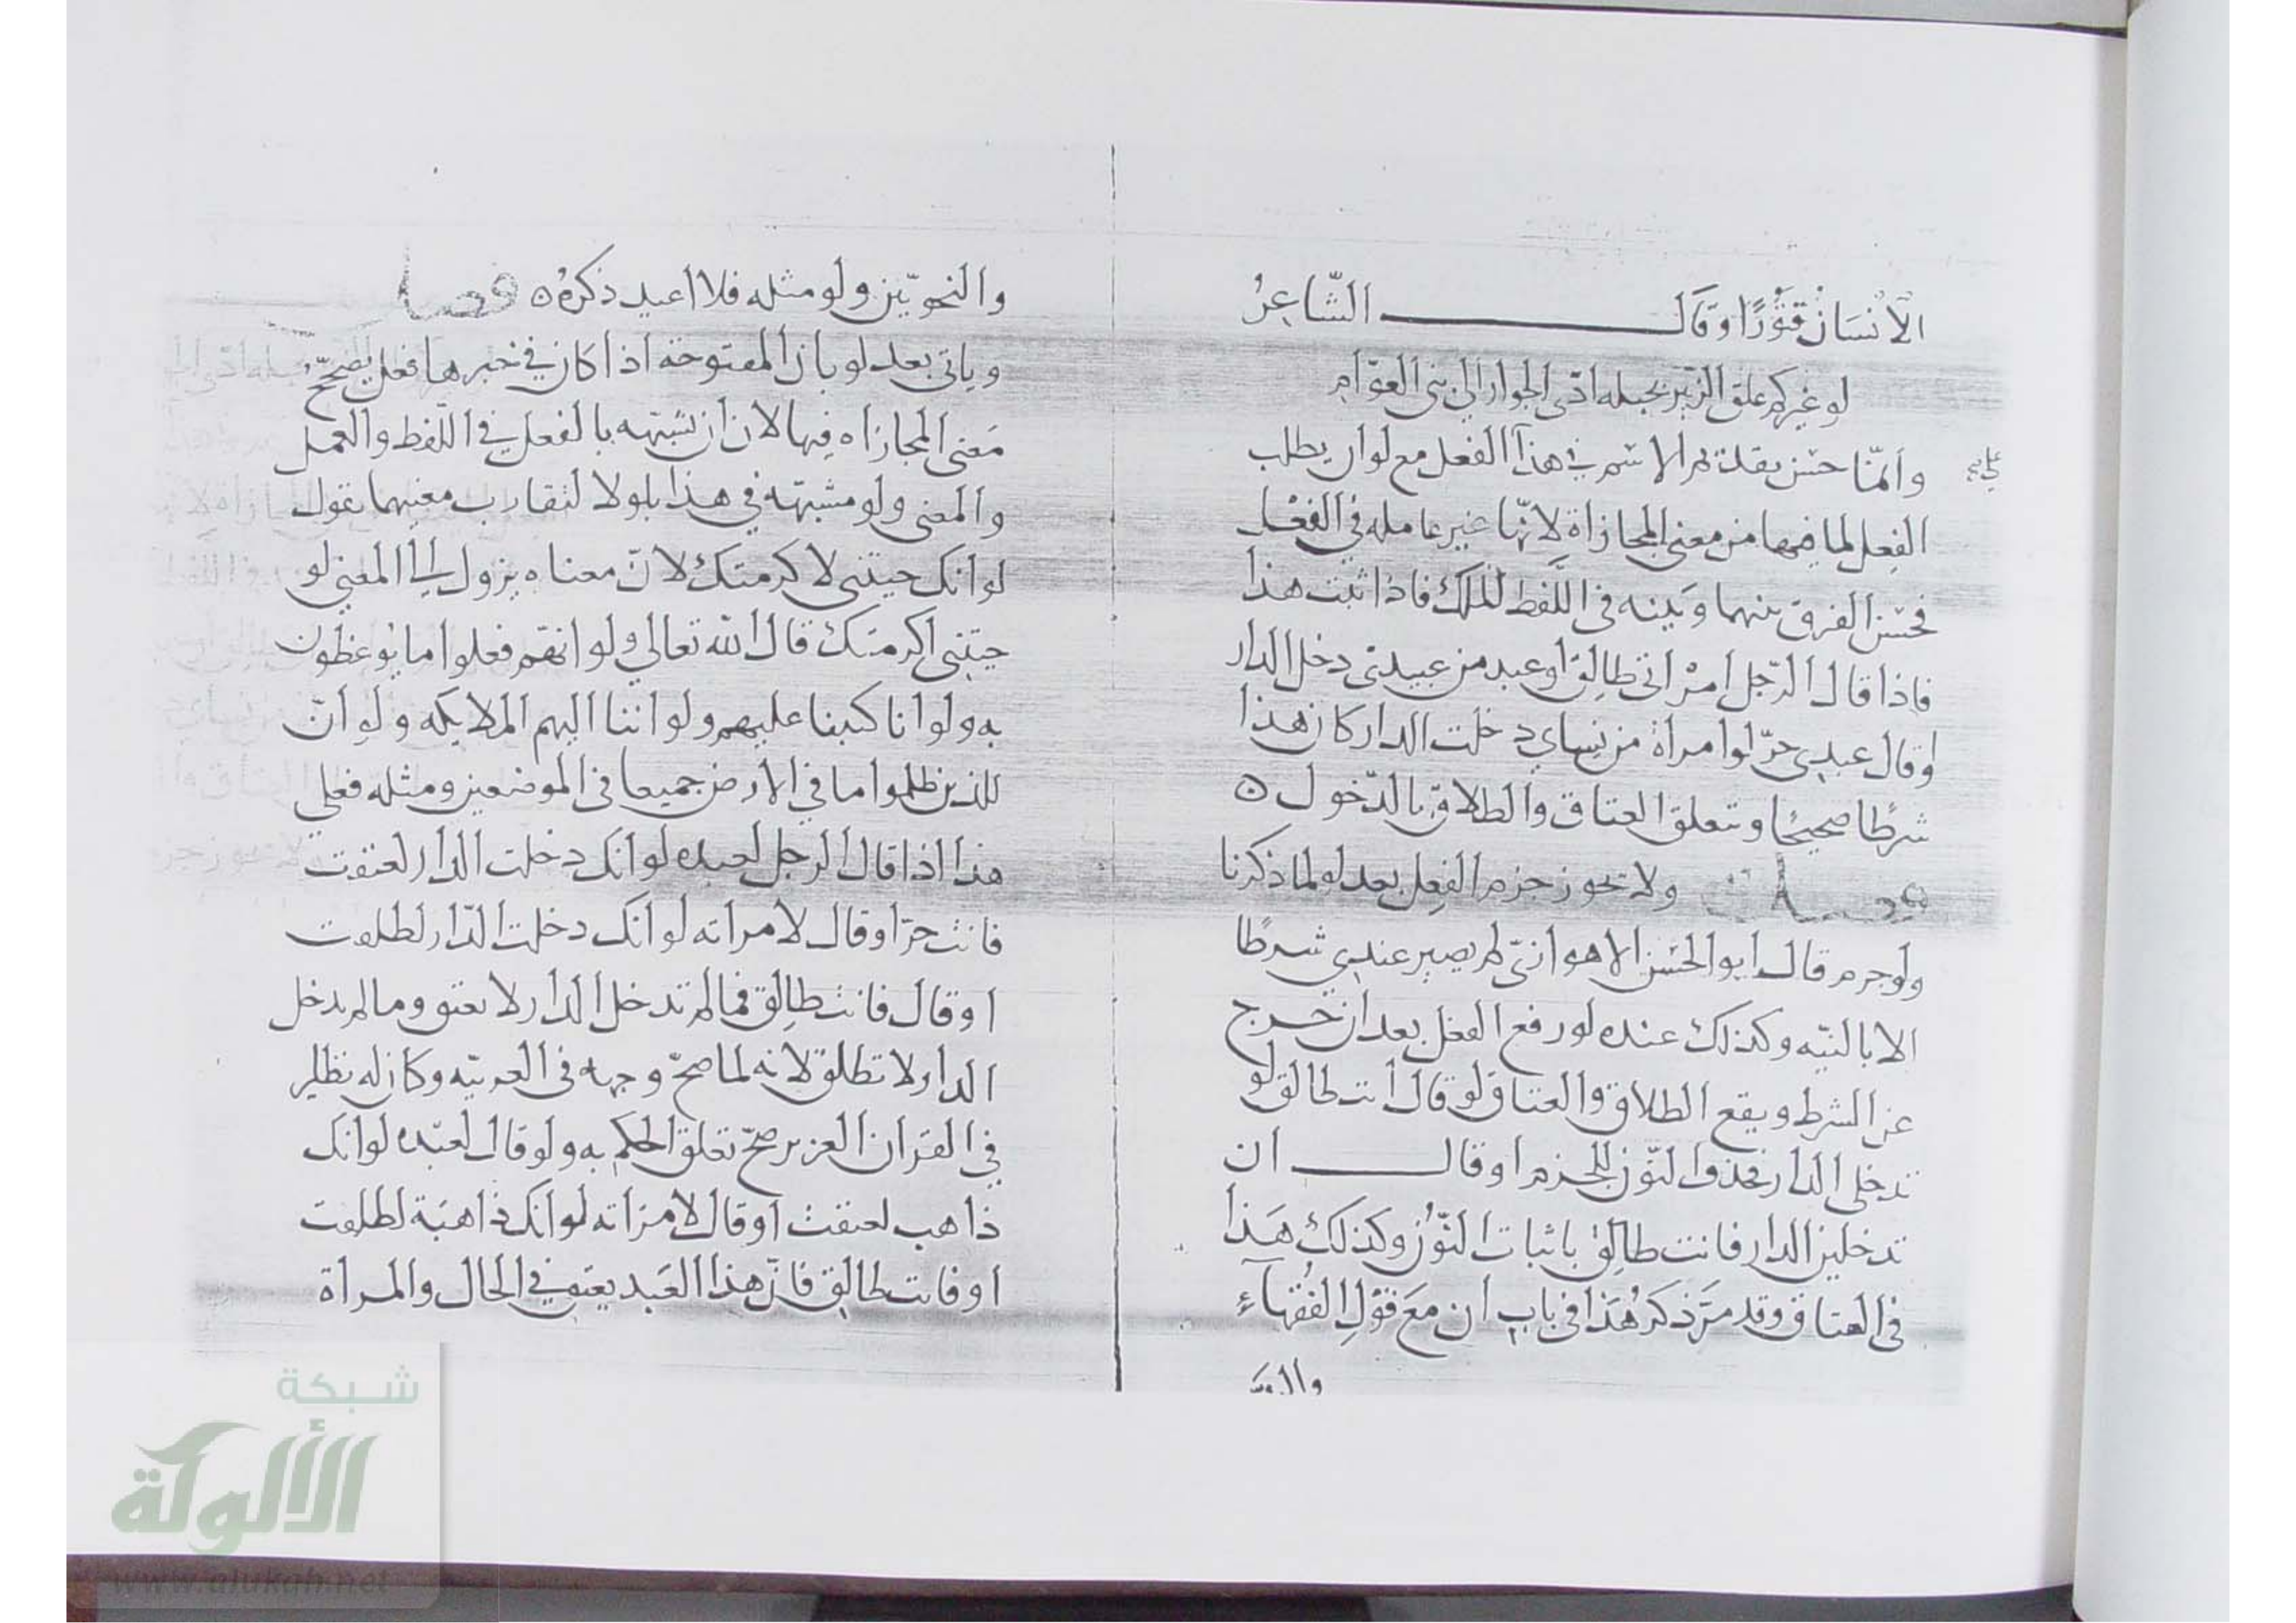 الانسان قتورًا وقال الشّاعِرُ
لو غيركم علق الزبير بحبله ادّى الجوار الى بنى العوّام
وانّما حسن تقدّم الاسم في هذا الفعل مع لو ان يطلب
الفِعل لما فيها من معنى المجازاة لانّها غير عامله في الفعْل
فحسّن الفرق بينهما وبَينه في اللَّفظ لذلك فاذا ثبت هذا
فاذا قال الرّجل امرْاتى طالِق او عبد من عبيدى دخل الدار
او قال عبدى حرّ لو امراة من نِساي دخلت الدار كان هذا
شرطًا صحيحًا وتعلق العتاق والطلاق بالدّخول ه
فصل ولا يجوز جزم الفِعل بعد لو لما ذكرنا
ولو جزم قال ابو الحَسَن الاهوازىّ لم يصير عندي شرطًا
الا بالنيّه وكذلك عنده لو رفع الفعل بعد ان خرج
عن الشرط ويقع الطلاق والعتاق لو قال انت طالق لو
تدخلى الدار فحذف النّون للجزم او قال ان
تدخلين الدار فانت طالِق باثبات النّوُن وكذلك هَذا
في العتاق وقد مرَّ ذكرُ هَذا في باب ان مَعَ قَوْلِ الفُقهاءِ
والنحويّين ولو مثله فلا اعيد ذكرهُ ه فصل
وياتى بعد لو بان المفتوحة اذا كان في خبرها فعل يصحّح
مَعنى المجازاه فيها لان ان شبّهته بالفعل في اللّفظ والعمل
والمعنى ولو مشبهّته في هذا بلولا لتقارب معنيهما تقول
لو انك جيتنى لاكرمتك لانّ معناه يزول الى المعنى لو
جيتنى اكرمتك قال الله تعالى ولو انهّم فعلوا ما يُوعظون
به ولو انا كتبنا عليهم ولو اننا اليهم الملايكه ولو انّ
للذين ظلموا ما في الارض جميعا في الموضعين ومثله فعلى
هذا اذا قال الرجل لعبده لو انك دخلت الدار لعتقت
فانت حرّ او قال لامراته لو انك دخلت الدّار لطلقت
او قال فانت طالِق فما لم تدخل الدار لا يعتق وما لم تدخل
الدار لا تطلق لانه لما صحّ وجهه في العربيّه وكان له نظير
في القران العزيز صحّ تعلق الحكم به ولو قال لعبّده لو انك
ذاهب لعتقت او قال لامرَاته لو انك ذاهبَة لطلقت
او فانت طالق فانّ هذا العَبد يعتق في الحال والمراة
شبكة
الألوكة
www.alukah.net